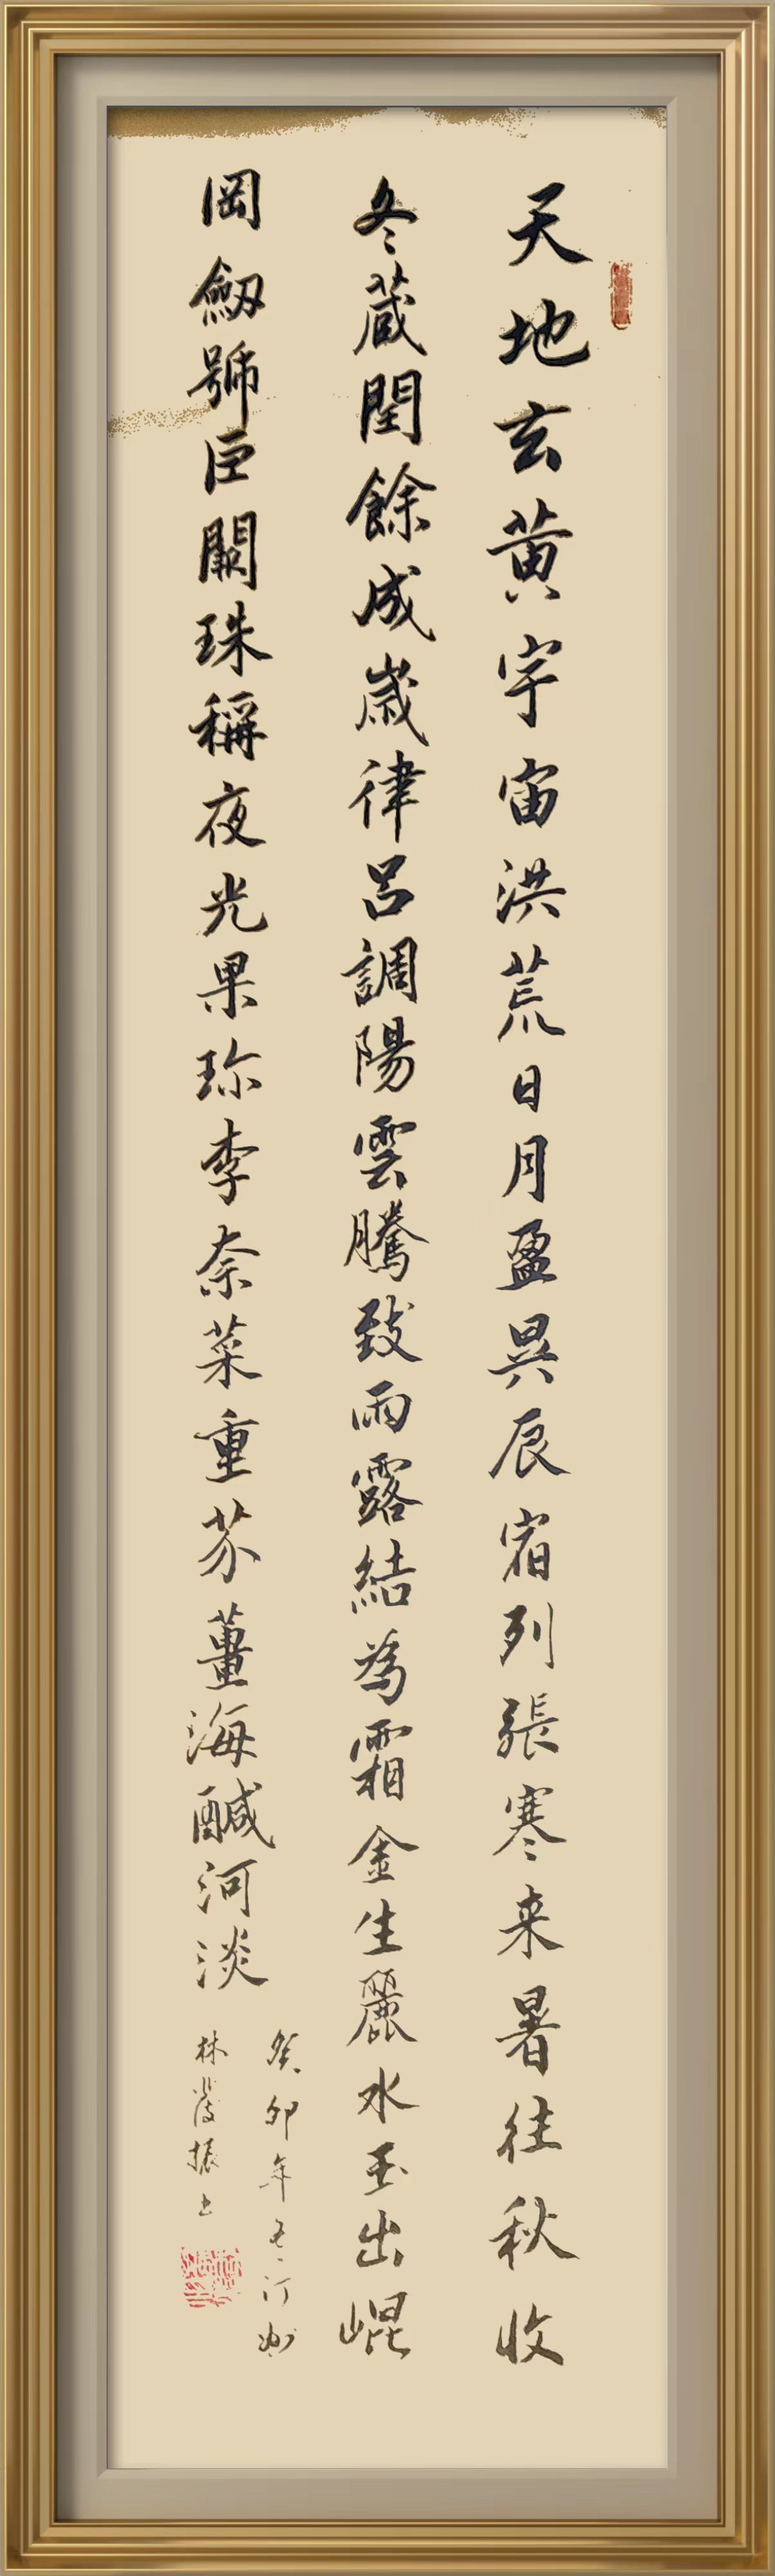 天地玄黄宇宙洪荒日月盈昃辰宿列張寒来暑往秋收
冬蔵閏餘成歲律呂調陽雲騰致雨露結為霜金生麗水玉出崐
岡劔號巨闕珠稱夜光果珍李奈菜重芥薑海鹹河淡
癸卯年於汀州
林茂振上